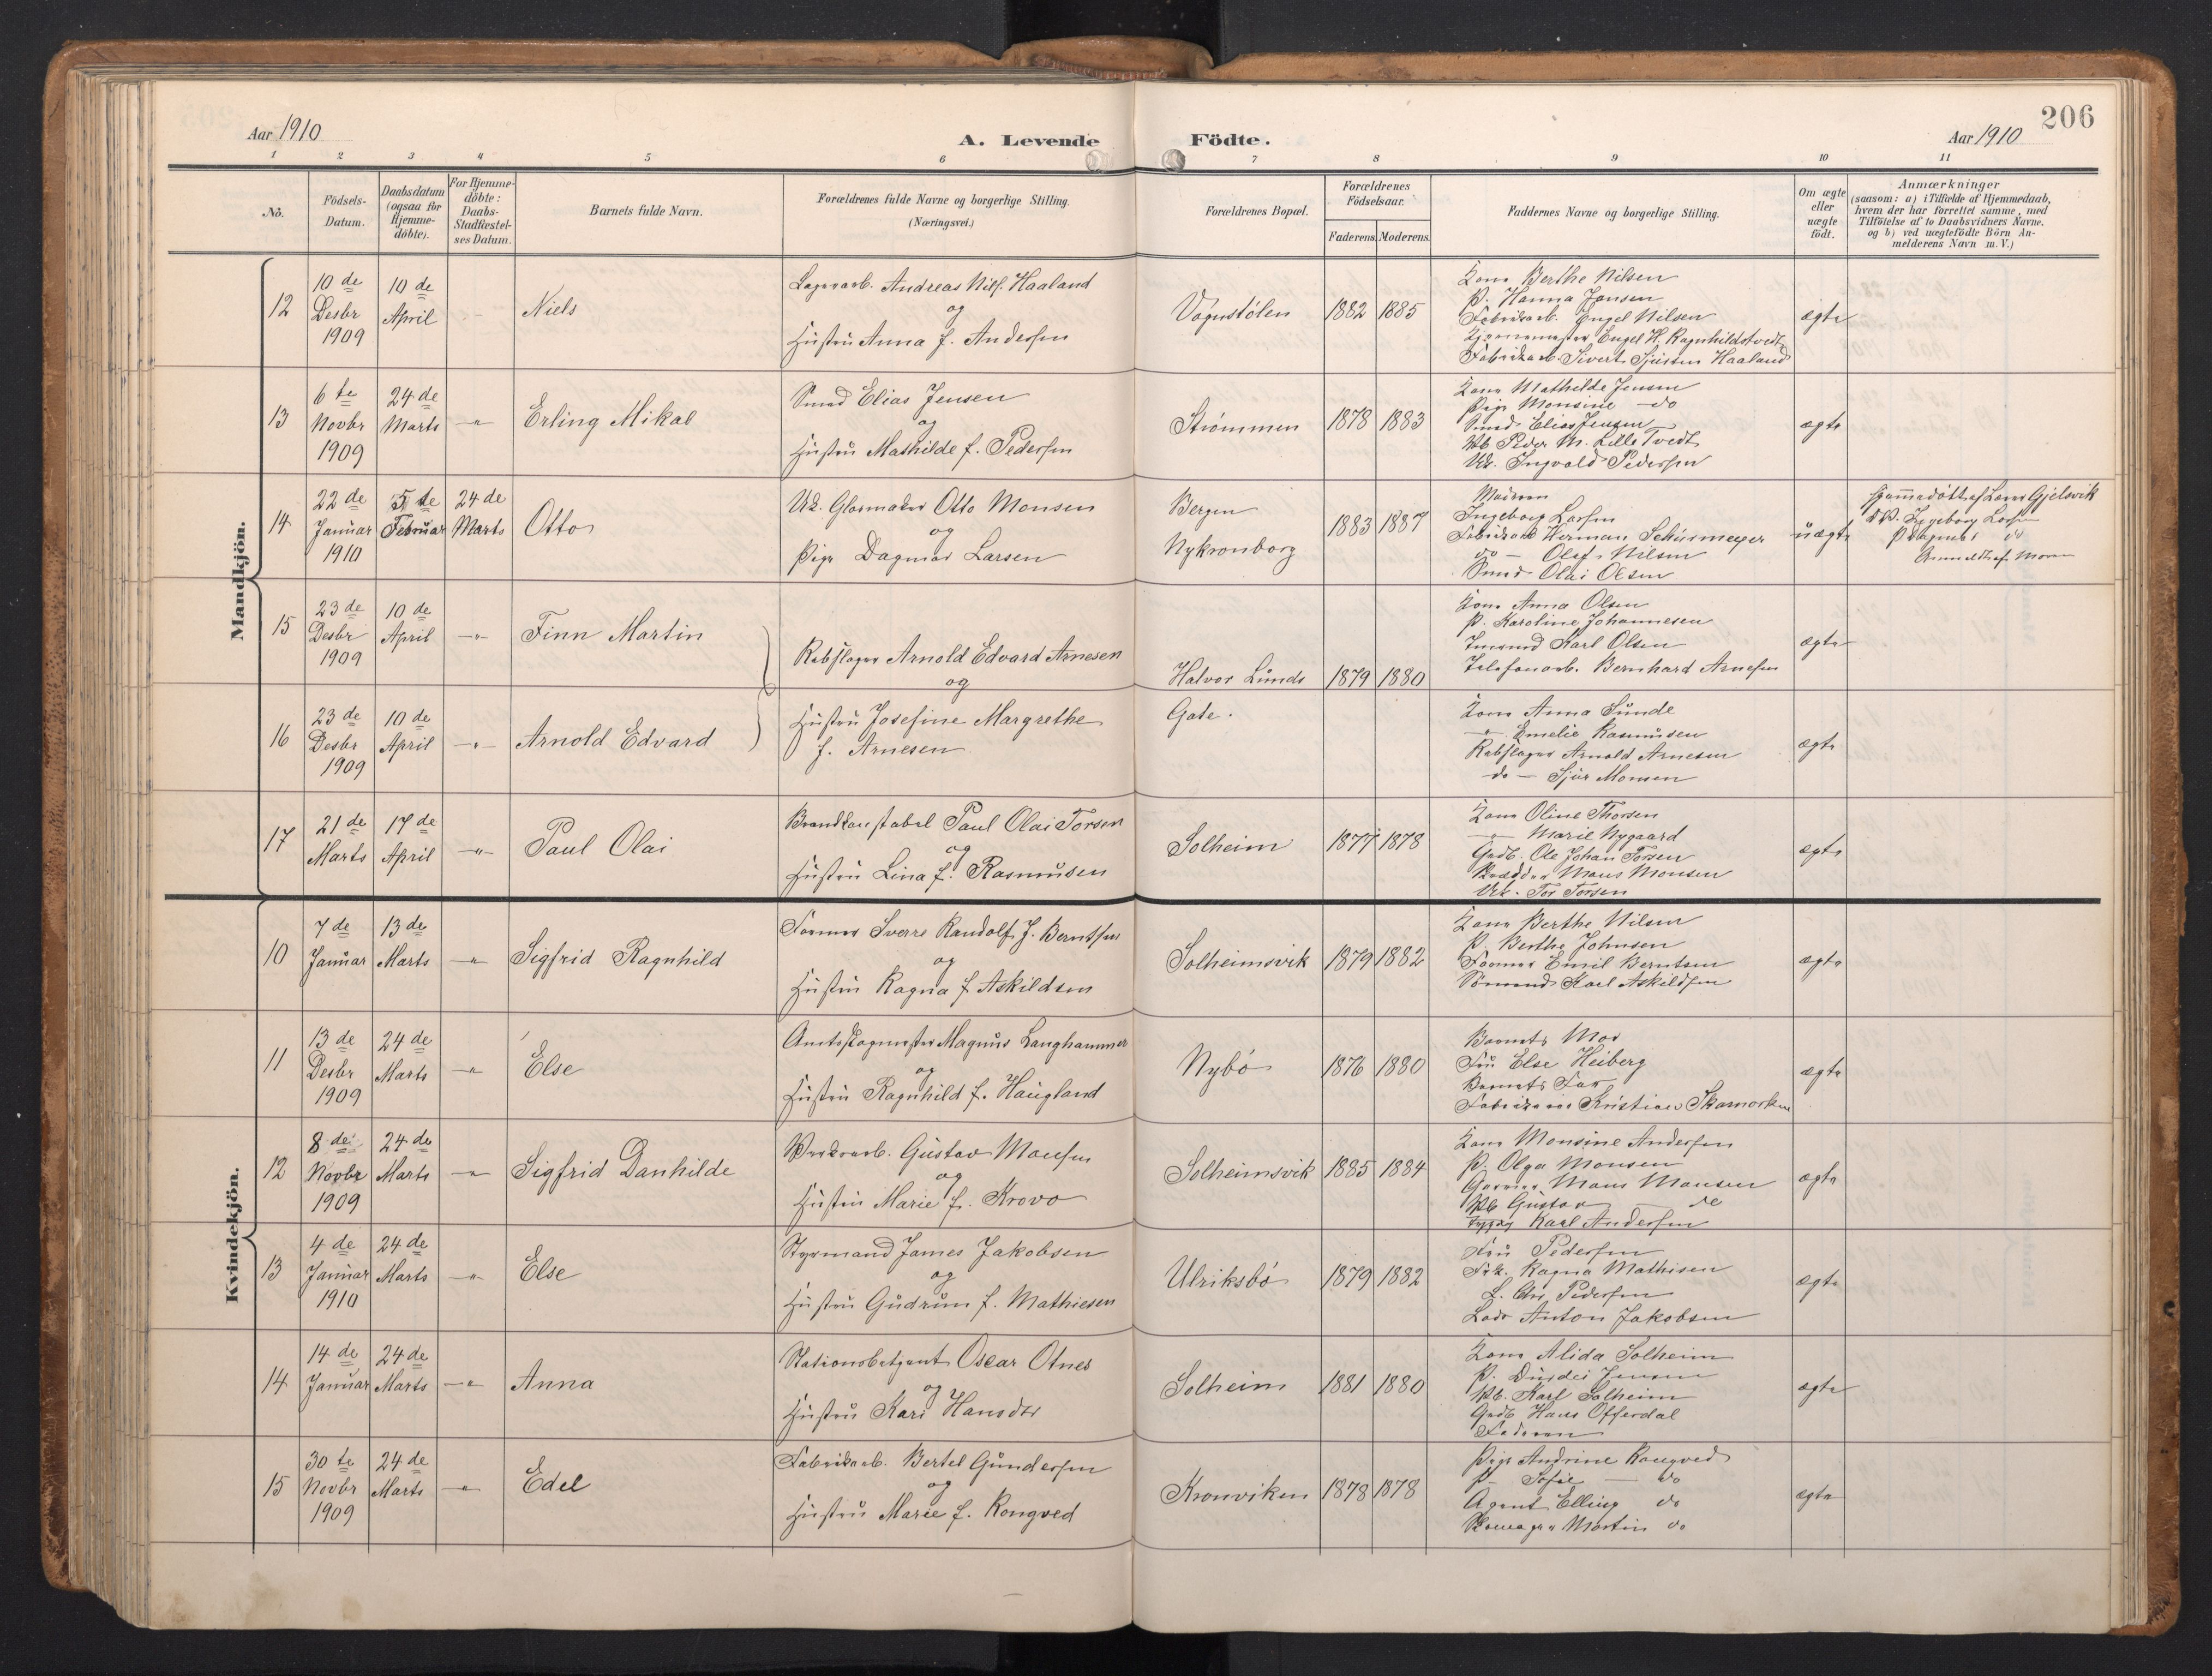 206
Aar 1910
A. Levende Födte.
Aar 1910
1 2 3 4 5 6 7 8 9 10 11
No.
Födsels-Datum.
Daabsdatum (ogsaa for Hjemme-döbte).
For Hjemme-döbte: Daabs-Stadfæstel-ses Datum.
Barnets fulde Navn.
Forældrenes fulde Navne og borgerlige Stilling.
(Næringsvei.)
Forældrenes Bopæl.
Forældrenes Födselsaar.
Faderens. Moderens.
Faddernes Navne og borgerlige Stilling.
Om ægte eller uægte födt.
Anmærkninger
(saasom: a) i Tilfælde af Hjemmedaab,
hvem der har forrettet samme, med
Tilföielse af to Daabsvidners Navne.
og b) ved uægtefödte Börn An-
melderens Navn m. V.)
Mandkjön.
12
10 de Desbr 1909
10 de April
Niels
Lagerarb. Andreas Nils. Haaland
og
Hustru Anna f. Andersen
Vognstølen
1882 1885
Kone Berthe Nilsen
P. Hanna Jansen
Fabrikarb. Engel Nilsen
Engel H. Ragnhildstvedt
Fabrikarb. Sivert Sjursen Haaland
ægte
13
6 te Novbr 1909
24 de Marts
-"-
Erling Mikal
Smed Elias Jensen
og
Hustru Mathilde f. Pedersen
Strømmen
1878 1883
Kone Mathilde Jensen
Pige Monsine do
Smed Elias Jensen
Peder M. Lille Tvedt
Uk. Ingvald Pedersen
ægte
14
22 de Januar 1910
5 te Februar
24 de Marts
Otto
Uk. Glasmaker Otto Monsen
og
Pige Dagmar Larsen
Bergen
Nykronborg
1883 1887
Moderen
Ingeborg Larsen
Fabrikarb Herman Schusmeyer
do - Olaf Nilsen
Smed Olai Olsen
uægte
Hjemmedøbt af Lærer Gjelsvik
Ingeborg Larsen
do
Anmeldt af Moren
15
23 de Desbr 1909
10 de April
-"-
Finn Martin
Rebslager Arnold Edvard Arnesen
og
Hustru Josefine Margrethe
f. Arnesen
Halvor Lunds
Gate.
1879 1880
Kone Anna Olsen
P. Karoline Johannesen
Karl Olsen
Telefonarb. Bernhard Arnesen
ægte
16
23 de Desbr 1909
10 de April
-"-
Arnold Edvard
Kone Anna Sunde
-"- Emelie Rasmusen
Rebslager Arnold Arnesen
do - Sjur Monsen
ægte
17
21 de Marts
17 de April
-"-
Paul Olai
Brandkonstabel Paul Olai Torsen
og
Hustru Lina f. Rasmusen
Solheim
1877 1878
Kone Oline Thorsen
-"- Marie Nygaard
Grdb. Ole Johan Torsen
Skrædder Mons Monsen
Uk. Tor Torsen
ægte
Kvindekjön.
10
7 de Januar
13 de Marts
-"-
Sigfrid Ragnhild
Former Sverre Randolf J. Berntsen
og
Hustru Ragna f. Askildsen
Solheimsvik
1879 1882
Kone Berthe Nilsen
P. Berthe Johnsen
Former Emil Berntsen
Sømand Karl Askildsen
ægte
11
13 de Desbr 1909
24 de Marts
-"-
Else
Amtsskogmester Magnus Langhammer
og
Hustru Ragnhild f. Haugland
Nybø
1876 1880
Barnets Mor
Fru Else Heiberg
Barnets Far
Kristian Skamorken
ægte
12
8 de Novbr 1909
24 de Marts
-"-
Sigfrid Danhilde
Verksarb. Gustav Monsen
og
Hustru Marie f. Krovo
Solheimsvik
1885 1884
Kone Monsine Andersen
P. Olga Monsen
Mons Monsen
Gustav do
Karl Andersen
ægte
13
4 de Januar 1910
24 de Marts
-"-
Else
Styrmand James Jakobsen
og
Hustru Gudrun f. Mathiesen
Ulriksbø
1879 1882
Fru Pedersen
Frk. Ragna Mathisen
Pedersen
Lods Anton Jakobsen
ægte
14
14 de Januar
24 de Marts
-"-
Anna
Stationsbetjent Oscar Otnes
og
Hustru Kari Hansdtr
Solheim
1881 1880
Kone Alida Solheim
P. Durdei Jensen
Karl Solheim
Grdb Hans Offerdal
Faderen
ægte
15
30 te Novbr 1909
24 de Marts
-"-
Edel
Fabrikarb. Bertel Gundersen
og
Hustru Marie f. Rongved
Kronviken
1878 1878
Pige Andrine Rongved
P. Sofie - do
Agent Elling do
Skomager Martin do
ægte